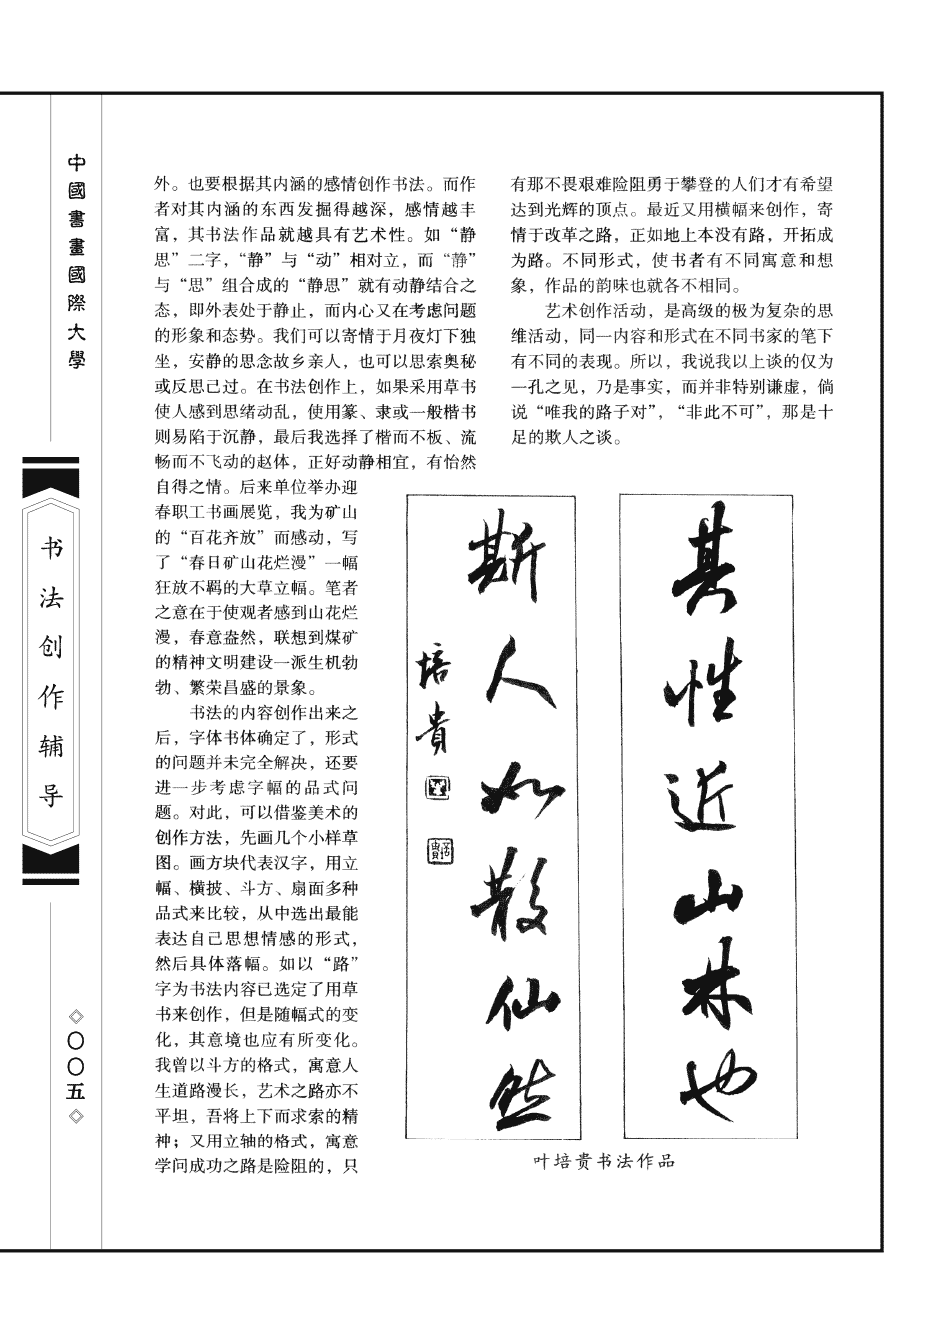 中國書畫國際大學
书法创作辅导
◇〇〇五◇
外。也要根据其内涵的感情创作书法。而作
者对其内涵的东西发掘得越深，感情越丰
富，其书法作品就越具有艺术性。如“静
思”二字，“静”与“动”相对立，而“静”
与“思”组合成的“静思”就有动静结合之
态，即外表处于静止，而内心又在考虑问题
的形象和态势。我们可以寄情于月夜灯下独
坐，安静的思念故乡亲人，也可以思索奥秘
或反思己过。在书法创作上，如果采用草书
使人感到思绪动乱，使用篆、隶或一般楷书
则易陷于沉静，最后我选择了楷而不板、流
畅而不飞动的赵体，正好动静相宜，有怡然
自得之情。后来单位举办迎
春职工书画展览，我为矿山
的“百花齐放”而感动，写
了“春日矿山花烂漫”一幅
狂放不羁的大草立幅。笔者
之意在于使观者感到山花烂
漫，春意盎然，联想到煤矿
的精神文明建设一派生机勃
勃、繁荣昌盛的景象。
书法的内容创作出来之
后，字体书体确定了，形式
的问题并未完全解决，还要
进一步考虑字幅的品式问
题。对此，可以借鉴美术的
创作方法，先画几个小样草
图。画方块代表汉字，用立
幅、横披、斗方、扇面多种
品式来比较，从中选出最能
表达自己思想情感的形式，
然后具体落幅。如以“路”
字为书法内容已选定了用草
书来创作，但是随幅式的变
化，其意境也应有所变化。
我曾以斗方的格式，寓意人
生道路漫长，艺术之路亦不
平坦，吾将上下而求索的精
神；又用立轴的格式，寓意
学问成功之路是险阻的，只
有那不畏艰难险阻勇于攀登的人们才有希望
达到光辉的顶点。最近又用横幅来创作，寄
情于改革之路，正如地上本没有路，开拓成
为路。不同形式，使书者有不同寓意和想
象，作品的韵味也就各不相同。
艺术创作活动，是高级的极为复杂的思
维活动，同一内容和形式在不同书家的笔下
有不同的表现。所以，我说我以上谈的仅为
一孔之见，乃是事实，而并非特别谦虚，倘
说“唯我的路子对”，“非此不可”，那是十
足的欺人之谈。
其性近山林也
斯人如散仙然
培貴
叶培贵书法作品